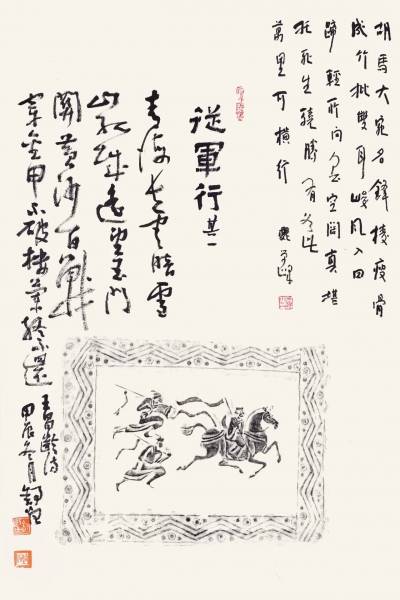 胡馬大宛名鋒棱瘦骨
成竹批雙耳峻風入四
蹄輕所向無空闊真堪
托死生驍騰有如此
萬里可橫行
從軍行
青海長雲暗雪
山孤城遙望玉門
關黄沙百戰
穿金甲不破樓蘭終不還
王昌齡詩
甲辰冬月